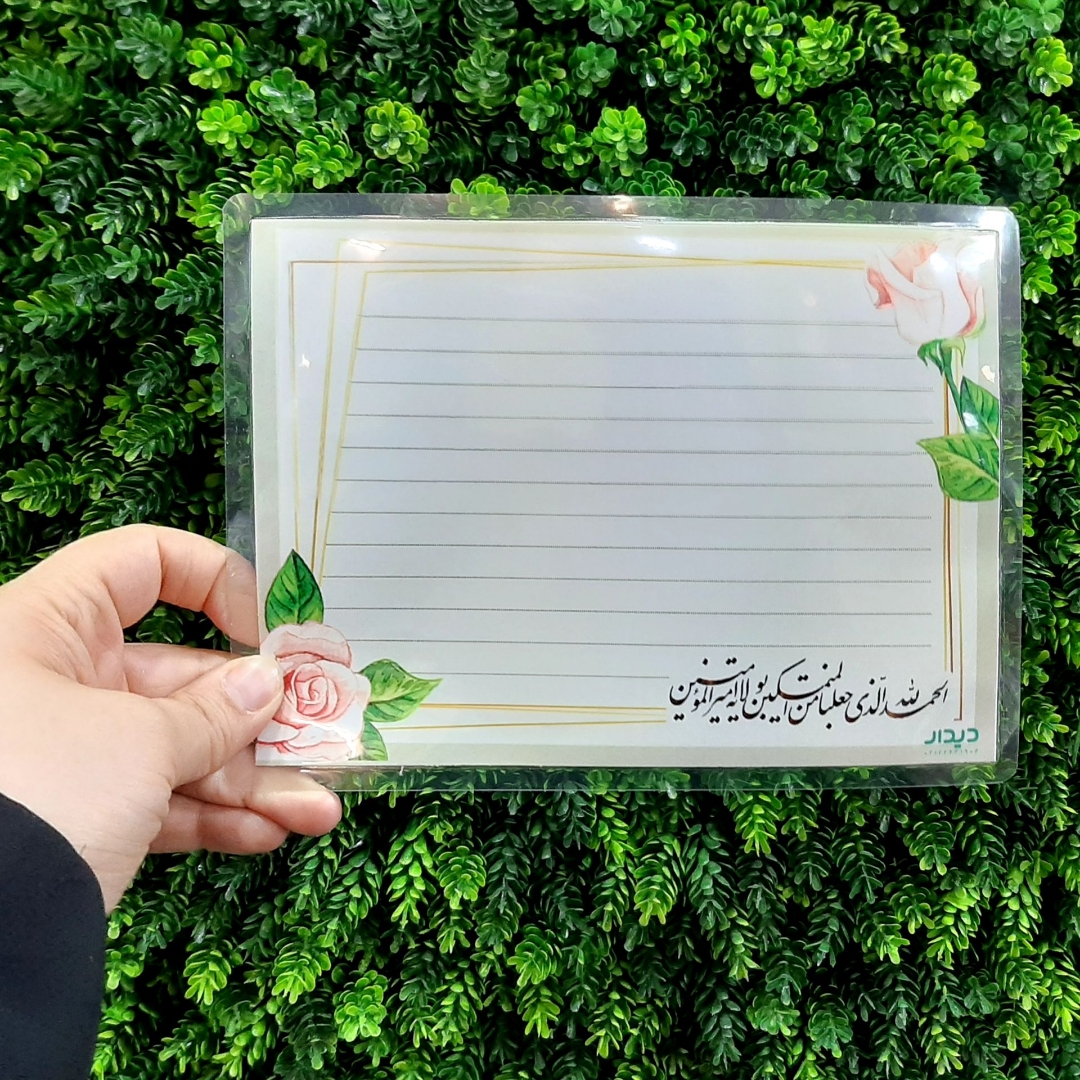 الحمد لله الّذی جعلنا من المتمسکین بولایه امیرالمؤمنین
دیدار